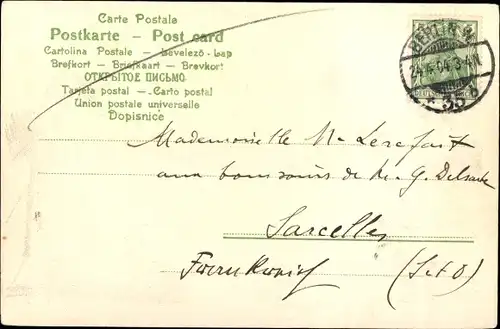 Carte Postale
Postkarte — Post card
Cartolina Postale — Levelező-Lap
Brefkort — Briefkaart — Brevkort
ОТКРЫТОЕ ПИСЬМО
Tarjeta postal — Carto postal
Union postale universelle
Dopisnice
BERLIN W.
35 b
Mademoiselle N. Lerefait
aux bons soins de M. G. Delsarte
Sarcelles
Frankreich (S et O)